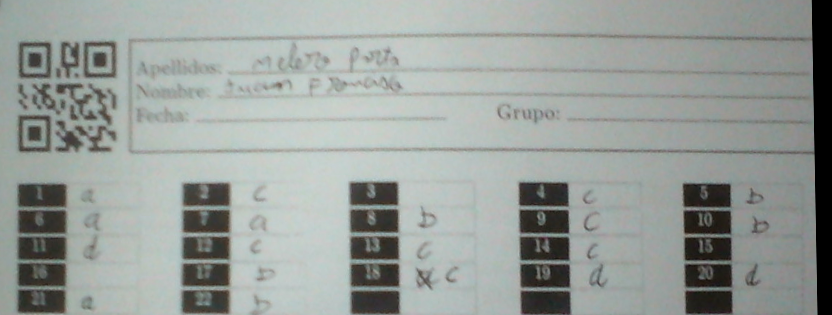 Apellidos: Melero Porto
Nombre: Juan Francisco
Fecha: Grupo:
1 a 2 c 3 4 c 5 b
6 a 7 a 8 b 9 c 10 b
11 d 12 c 13 c 14 c 15
16 17 b 18 c 19 d 20 d
21 a 22 b